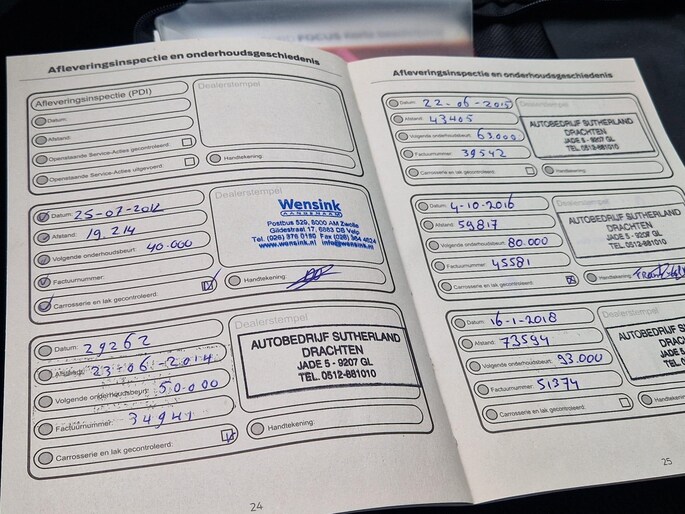 FOCUS
Afleveringsinspectie en onderhoudsgeschiedenis
Afleveringsinspectie (PDI)
Datum:
Afstand:
Openstaande Service-Acties gecontroleerd:
Openstaande Service-Acties uitgevoerd:
Dealerstempel
Handtekening:
Datum: 25-07-2012
Afstand: 19.214
Volgende onderhoudsbeurt: 40.000
Factuurnummer:
Carrosserie en lak gecontroleerd:
Dealerstempel
Wensink
Postbus 529, 8000 AM Zwolle
Gildestraat 17, 6883 DB Velp
Tel. (026) 376 0180 Fax (026) 364 4624
www.wensink.nl info@wensink.nl
Handtekening:
Datum: 29262
Afstand: 23-06-2014
Volgende onderhoudsbeurt: 50.000
Factuurnummer: 34941
Carrosserie en lak gecontroleerd:
Dealerstempel
AUTOBEDRIJF SUTHERLAND
DRACHTEN
JADE 5 - 9207 GL
TEL. 0512-881010
Handtekening:
24
Afleveringsinspectie en onderhoudsgeschiedenis
Datum: 22-06-2015
Afstand: 43405
Volgende onderhoudsbeurt: 63.000
Factuurnummer: 39542
Carrosserie en lak gecontroleerd:
Dealerstempel
AUTOBEDRIJF SUTHERLAND
DRACHTEN
JADE 5 - 9207 GL
TEL. 0512-881010
Handtekening:
Datum: 4-10-2016
Afstand: 59817
Volgende onderhoudsbeurt: 80.000
Factuurnummer: 45581
Carrosserie en lak gecontroleerd:
Dealerstempel
AUTOBEDRIJF SUTHERLAND
DRACHTEN
JADE 5 - 9207 GL
TEL. 0512-881010
Handtekening:
Datum: 16-1-2018
Afstand: 73594
Volgende onderhoudsbeurt: 93.000
Factuurnummer: 51374
Carrosserie en lak gecontroleerd:
Dealerstempel
AUTOBEDRIJF SUTHERLAND
DRACHTEN
JADE 5 - 9207 GL
TEL. 0512-881010
Handtekening:
25